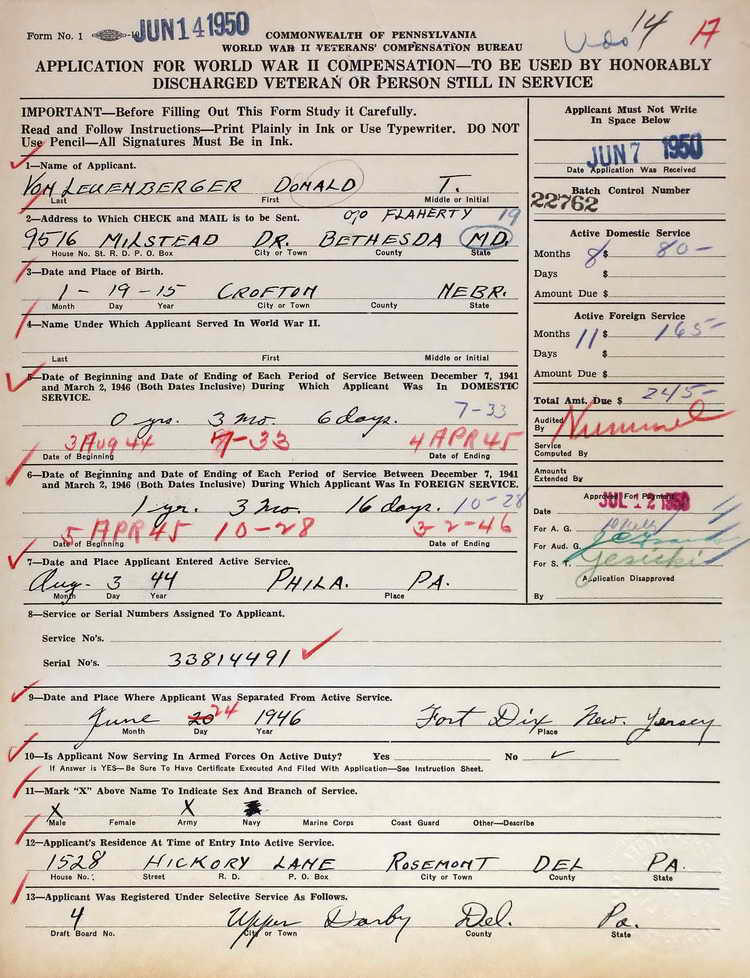 Form No. 1
JUN 14 1950
COMMONWEALTH OF PENNSYLVANIA
WORLD WAR II VETERANS' COMPENSATION BUREAU
14 17
APPLICATION FOR WORLD WAR II COMPENSATION—TO BE USED BY HONORABLY
DISCHARGED VETERAN OR PERSON STILL IN SERVICE
IMPORTANT—Before Filling Out This Form Study it Carefully.
Read and Follow Instructions—Print Plainly in Ink or Use Typewriter. DO NOT
Use Pencil—All Signatures Must Be in Ink.
1—Name of Applicant.
VON LEUENBERGER DONALD T.
Last First Middle or Initial
2—Address to Which CHECK and MAIL is to be Sent. c/o FLAHERTY 19
9516 MILSTEAD DR. BETHESDA MD.
House No. St. R. D. P. O. Box City or Town County State
3—Date and Place of Birth.
1-19-15 CROFTON NEBR.
Month Day Year City or Town County State
4—Name Under Which Applicant Served In World War II.
Last First Middle or Initial
5—Date of Beginning and Date of Ending of Each Period of Service Between December 7, 1941
and March 2, 1946 (Both Dates Inclusive) During Which Applicant Was In DOMESTIC
SERVICE.
0 yrs. 3 mo. 6 days. 7-33
3 Aug 44 7-33 4 APR 45
Date of Beginning Date of Ending
6—Date of Beginning and Date of Ending of Each Period of Service Between December 7, 1941
and March 2, 1946 (Both Dates Inclusive) During Which Applicant Was In FOREIGN SERVICE.
1 yr. 3 mo. 16 days. 10-28
5 APR 45 10-28 3-2-46
Date of Beginning Date of Ending
7—Date and Place Applicant Entered Active Service.
Aug. 3 44 PHILA. PA.
Month Day Year Place
8—Service or Serial Numbers Assigned To Applicant.
Service No's.
Serial No's. 33814491
9—Date and Place Where Applicant Was Separated From Active Service.
June 20 24 1946 Fort Dix New Jersey
Month Day Year Place
10—Is Applicant Now Serving In Armed Forces On Active Duty? Yes No ✓
If Answer is YES—Be Sure To Have Certificate Executed And Filed With Application—See Instruction Sheet.
11—Mark "X" Above Name To Indicate Sex and Branch of Service.
X X
Male Female Army Navy Marine Corps Coast Guard Other—Describe
12—Applicant's Residence At Time of Entry Into Active Service.
1528 HICKORY LANE ROSEMONT DEL PA.
House No. Street R. D. P. O. Box City or Town County State
13—Applicant Was Registered Under Selective Service As Follows.
4 Upper Darby Del. Pa.
Draft Board No. City or Town County State
Applicant Must Not Write
In Space Below
JUN 7 1950
Date Application Was Received
Batch Control Number
22762
Active Domestic Service
Months 8 $ 80-
Days $
Amount Due $
Active Foreign Service
Months 11 $ 165-
Days $
Amount Due $
Total Amt. Due $ 245-
Audited
By
Service
Computed By
Amounts
Extended By
Approved For Payment
Date JUL 12 1950
For A. G.
For Aud. G.
For S. T.
Application Disapproved
By